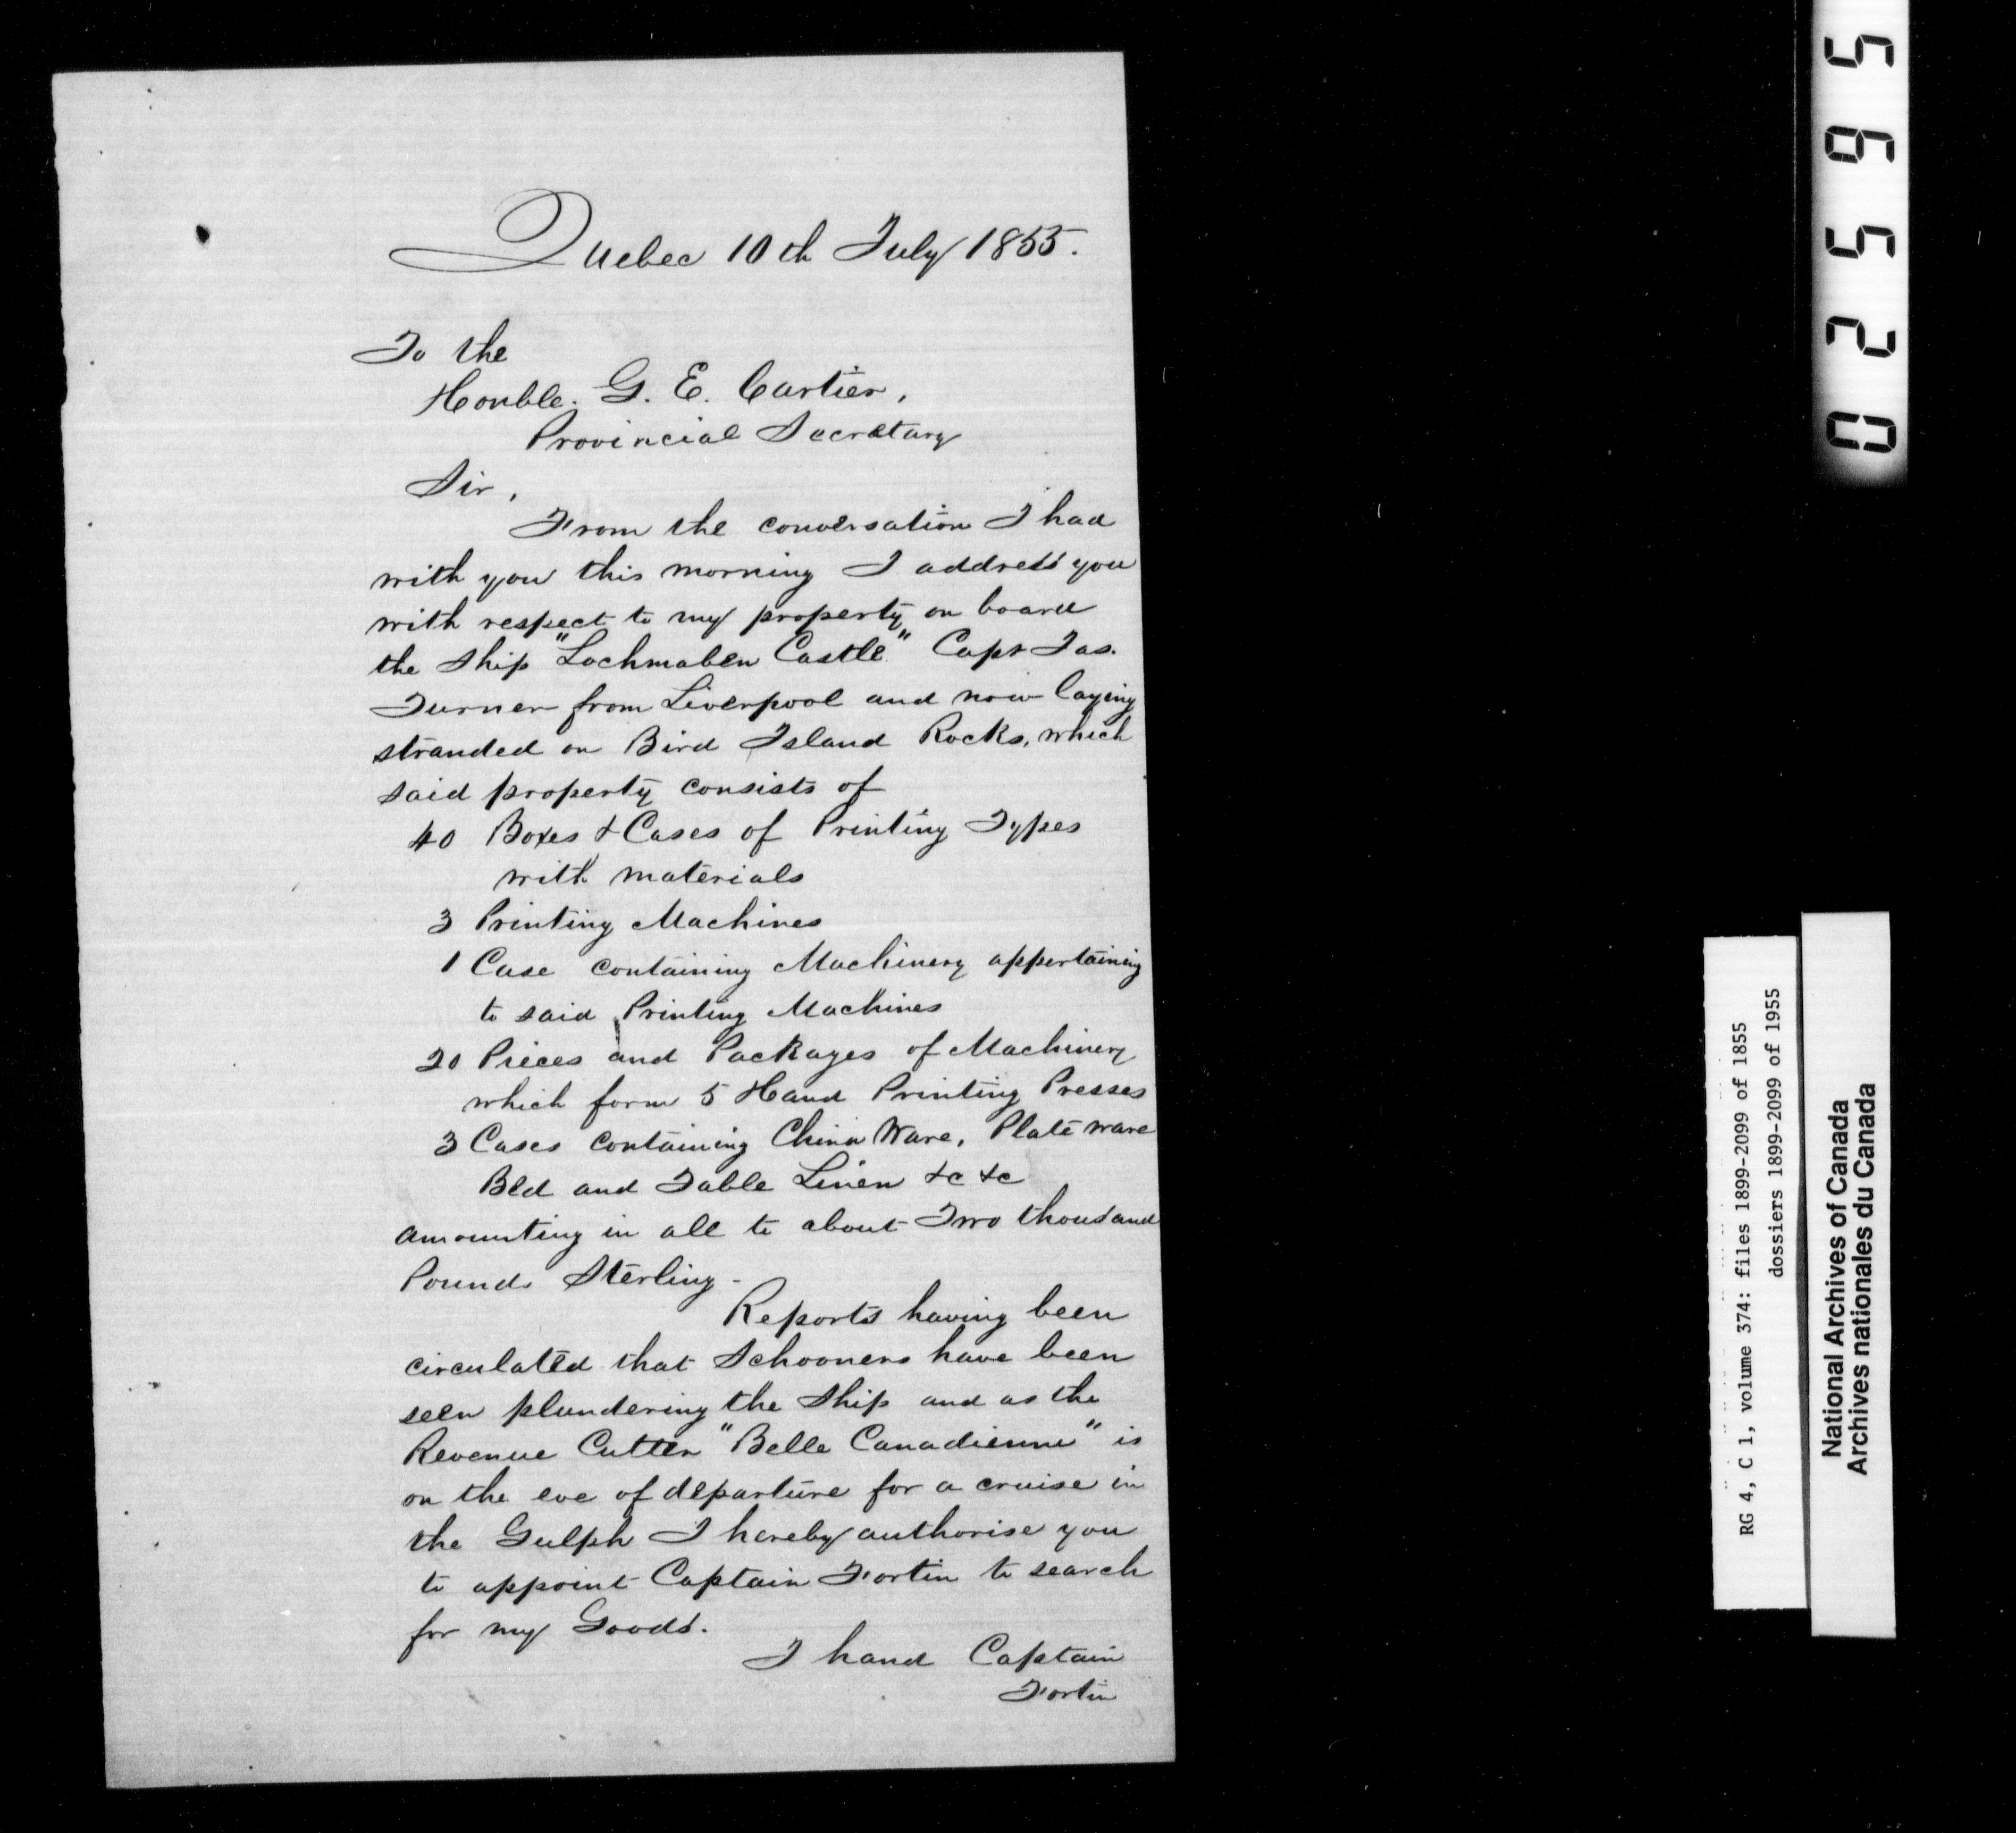 Quebec 10th July 1855.
To the
Honble. G. E. Cartier,
Provincial Secretary
Sir,
From the conversation I had
with you this morning I address you
with respect to my property on board
the Ship "Lochmaben Castle" Capt Jas.
Turner from Liverpool and now laying
stranded on Bird Island Rocks, which
said property consists of
40 Boxes & Cases of Printing Types
with materials
3 Printing Machines
1 Case containing Machinery appertaining
to said Printing Machines
20 Pieces and Packages of Machinery
which form 5 Hand Printing Presses
3 Cases containing China Ware, Plate ware
Bed and Table Linen &c &c
amounting in all to about Two thousand
Pounds Sterling -
Reports having been
circulated that Schooners have been
seen plundering the Ship and as the
Revenue Cutter "Belle Canadienne" is
on the eve of departure for a cruise in
the Gulph I hereby authorise you
to appoint Captain Fortin to search
for my Goods.
I hand Captain
Fortin
02595
RG 4, C 1, volume 374: files 1899-2099 of 1855
dossiers 1899-2099 of 1955
National Archives of Canada
Archives nationales du Canada